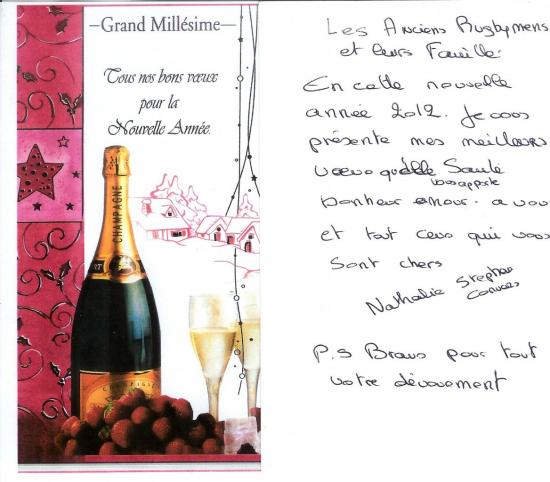 —Grand Millésime—
Tous nos bons vœux
pour la
Nouvelle Année.
CHAMPAGNE
CHAMPAGNE
Les Anciens Rugbymens
et leurs Famille.
En cette nouvelle
année 2012. Je vous
présente mes meilleurs
vœux qu'elle Santé
vous apporte
bonheur amour. a vous
et tout ceus qui vous
sont chers
Nathalie Stephan
P.S Bravo pour tout
votre dévouement